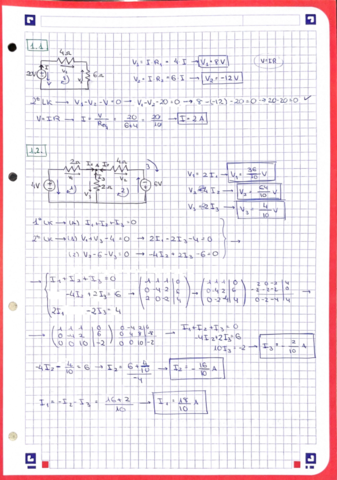 1.1
4Ω
I
V₁
6Ω
V₁ = I·R₁ = 4·I → V₁ = 8V
V = I·R
V₂ = I·R₂ = 6·I → V₂ = -12V
2º LK → V₁ - V₂ - V = 0 → V₁ - V₂ - 20 = 0 → 8 - (-12) - 20 = 0 → 20 - 20 = 0 ✓
V = I·R → I = V/Req = 20/(6+4) = 20/10 → I = 2A
1.2
2Ω
4Ω
2Ω
4V
6V
V₁ = 2I₁ → V₁ = 36/10 V
V₂ = 4I₂ → V₂ = 64/10 V
V₃ = 2I₃ → V₃ = 4/10 V
1º LK → (A) I₁ + I₂ + I₃ = 0
2º LK → (1) V₁ + V₃ - 4 = 0 → 2I₁ - 2I₃ - 4 = 0
→ (2) V₂ - 6 - V₃ = 0 → -4I₂ + 2I₃ - 6 = 0
I₁ + I₂ + I₃ = 0
-4I₂ + 2I₃ = 6
2I₁ - 2I₃ = 4
1 1 1 | 0
0 -4 2 | 6
2 0 -2 | 4
1 1 1 | 0
0 -4 2 | 6
0 -2 -4 | 4
1 1 1 | 0
0 -4 2 | 6
0 0 10 | -2
I₁ + I₂ + I₃ = 0
-4I₂ + 2I₃ = 6
10I₃ = -2 → I₃ = -2/10 A
-4I₂ - 4/10 = 6 → I₂ = (6 + 4/10)/-4 → I₂ = -16/10 A
I₁ = -I₂ - I₃ = (16+2)/10 → I₁ = 18/10 A